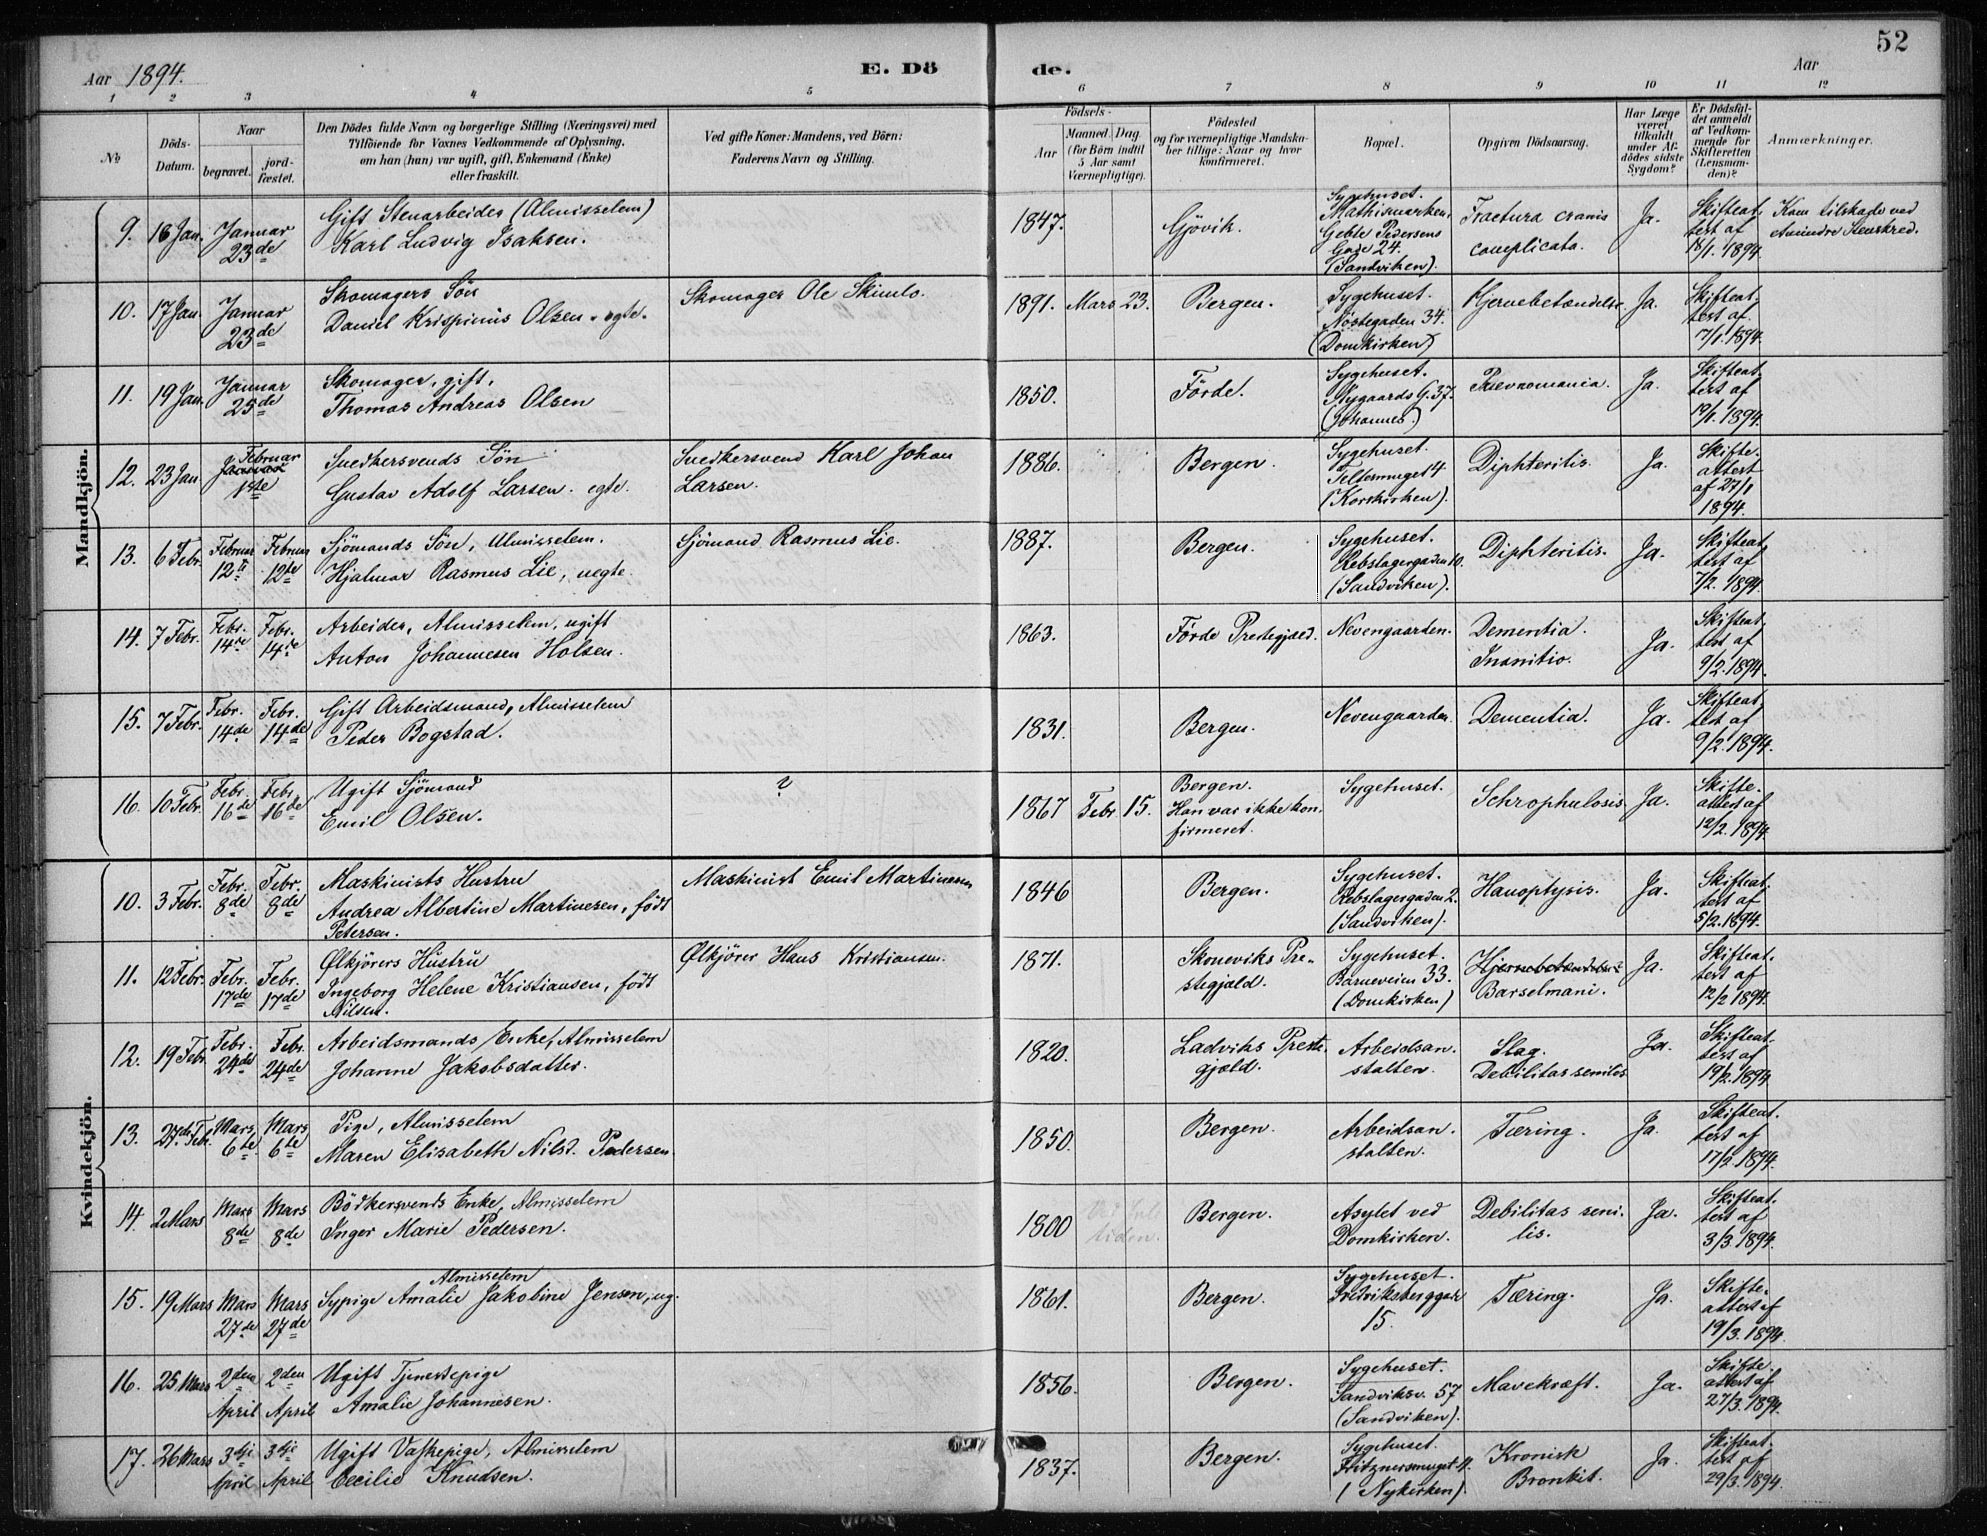 52
Aar 1894.
E. Dö
de.
Aar
1 2 3 4 5 6 7 8 9 10 11 12
No
Döds-Datum.
Naar
begravet.
jord-fæstet.
Den Dödes fulde Navn og borgerlige Stilling (Næringsvei) med
Tilföiende for Voxnes Vedkommende af Oplysning,
om han (hun) var ugift, gift, Enkemand (Enke)
eller fraskilt.
Ved gifte Koner: Mandens, ved Börn:
Faderens Navn og Stilling.
Födsels-
Aar
Maaned. Dag.
(for Börn indtil
5 Aar samt
Værnepligtige).
Födested
og for værnepligtige Mandska-
ber tillige: Naar og hvor
konfirmeret.
Bopæl.
Opgiven Dödsaarsag.
Har Læge
været
tilkaldt
under Af-
dödes sidste
Sygdom?
Er Dödsfal-
det anmeldt
af Vedkom-
mende for
Skifteretten
(Lensman-
den)?
Anmærkninger.
Mandkjön.
9. 16 Jan. Januar 23de
Gift Stenarbeider (Almisselem)
Karl Ludvig Isaksen.
1847. Gjövik.
Sygehuset.
Mathismarken,
Geble Pedersens
Gade 24.
(Sandviken).
Fractura cranii
complicata.
Ja.
Skifteat-
test af
18/1. 1894.
Kom tilskade ved
Stenskred.
10. 17 Jan. Januar 23de
Skomagers Sön
Daniel Krispinius Olsen. egte.
Skomager Ole
1891. Mars 23. Bergen.
Sygehuset.
Nöstegaden 34.
(Domkirken)
Hjernebetændelse.
Ja.
Skifteat-
test af
17/1. 1894.
11. 19 Jan. Januar 25de
Skomager, gift,
Thomas Andreas Olsen
1850. Förde.
Sygehuset.
Nygaards G. 37.
(Johannes)
Pnevmomania.
Ja.
Skifteat-
test af
19/1. 1894.
12. 23 Jan. Januar Februar 1ste
Snedkersvends Sön
Gustav Adolf Larsen. egte.
Snedkersvend Karl Johan
Larsen.
1886. Bergen.
Sygehuset.
14
(Korskirken).
Diphteritis.
Ja.
Skifte-
attest
af 27/1
1894.
13. 6 Febr. Februar 12te Februar 12te
Sjömands Sön, Almisselem.
Hjalmar Rasmus Lie, uegte.
Sjömand Rasmus Lie.
1887. Bergen.
Sygehuset.
Rebslagergaden 10.
(Sandviken).
Diphteritis.
Ja.
Skifteat-
test af
7/2. 1894.
14. 7 Febr. Febr. 14de Febr. 14de
Arbeider, Almisselem, ugift
Anton Johannesen Holsen.
1863. Förde Prestegjæld.
Nevengaarden.
Dementia.
Inanitio.
Ja.
Skifteat-
test af
9/2. 1894.
15. 7 Febr. Febr. 14de Febr. 14de
Gift Arbeidsmand, Almisselem
Peder Bogstad.
1831. Bergen.
Nevengaarden.
Dementia.
Ja.
Skifteat-
test af
9/2. 1894.
16. 10 Febr. Febr. 16de Febr. 16de
Ugift Sjömand
Emil Olsen.
?
1867 Febr. 15.
Bergen.
Han var ikke kon-
firmeret.
Sygehuset.
Schrophulosis.
Ja.
Skifte-
attest af
12/2. 1894.
Kvindekjön.
10. 3 Febr. Febr. 8de Febr. 8de
Maskinists Hustru
Andrea Albertine Martinesen, född
Petersen.
Maskinist Emil Martinesen
1846 Bergen.
Sygehuset.
Rebslagergaden 2.
(Sandviken).
Hæmoptysis.
Ja.
Skifteat-
test af
5/2. 1894.
11. 12 Febr. Febr. 17de Febr. 17de
Ølkjörers Hustru
Ingeborg Helene Kristiansen, födt
Nilsen.
Ølkjörer Hans Kristiansen.
1871. Skoneviks Pre-
stegjæld.
Sygehuset.
Barneveien 33.
(Domkirken)
Hjernebetændelse
Barselmani.
Ja.
Skifteat-
test af
12/2 1894.
12. 19 Febr. Febr. 24de Febr. 24de
Arbeidsmands Enke, Almisselem
Johanne Jakobsdatter.
1820. Ladviks Preste-
gjæld.
Arbeidsan-
stalten.
Slag.
Debilitas senilis
Ja.
Skifteat-
test af
19/2. 1894.
13. 27de Febr. Mars 6te Mars 6te
Pige, Almisselem
Maren Elisabeth Nilsd. Pedersen.
1850. Bergen.
Arbeidsan-
stalten.
Tæring.
Ja.
Skifteat-
test af
17/2 1894.
14. 2 Mars Mars 8de Mars 8de
Bödkersvends Enke, Almisselem
Inger Marie Pedersen.
1800 Ved Jul-
tiden.
Bergen.
Asylet ved
Domkirken.
Debilitas seni-
lis.
Ja.
Skifteat-
test af
3/3. 1894.
15. 19 Mars Mars 27de Mars 27de
Almisselem
Sypige Amalie Jakobine Jensen, ug.
1861. Bergen.
Sygehuset.
Fredriksberggade
15.
Tæring.
Ja.
Skifte-
attest af
19/3. 1894.
16. 25 Mars 2den April 2den April
Ugift Tjenestepige
Amalie Johannesen.
1856. Bergen.
Sygehuset.
Sandviksv. 57
(Sandviken).
Mavekræft.
Ja.
Skifte-
attest af
27/3. 1894.
17. 26 Mars 3die April 3die April
Ugift Vaskepige, Almisselem
Cecilie Knudsen.
1837. Bergen.
Sygehuset.
Fritznersmuget 4.
(Nykirken).
Kronisk
Bronkit.
Ja.
Skifteat-
test af
29/3. 1894.